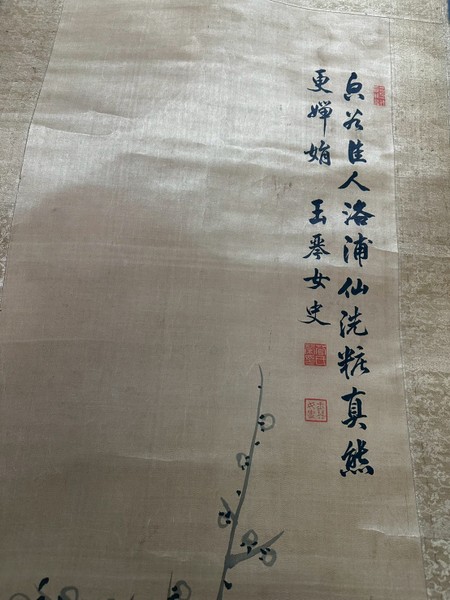 空谷佳人洛浦仙洗粧真態
更嬋娟 玉琴女史